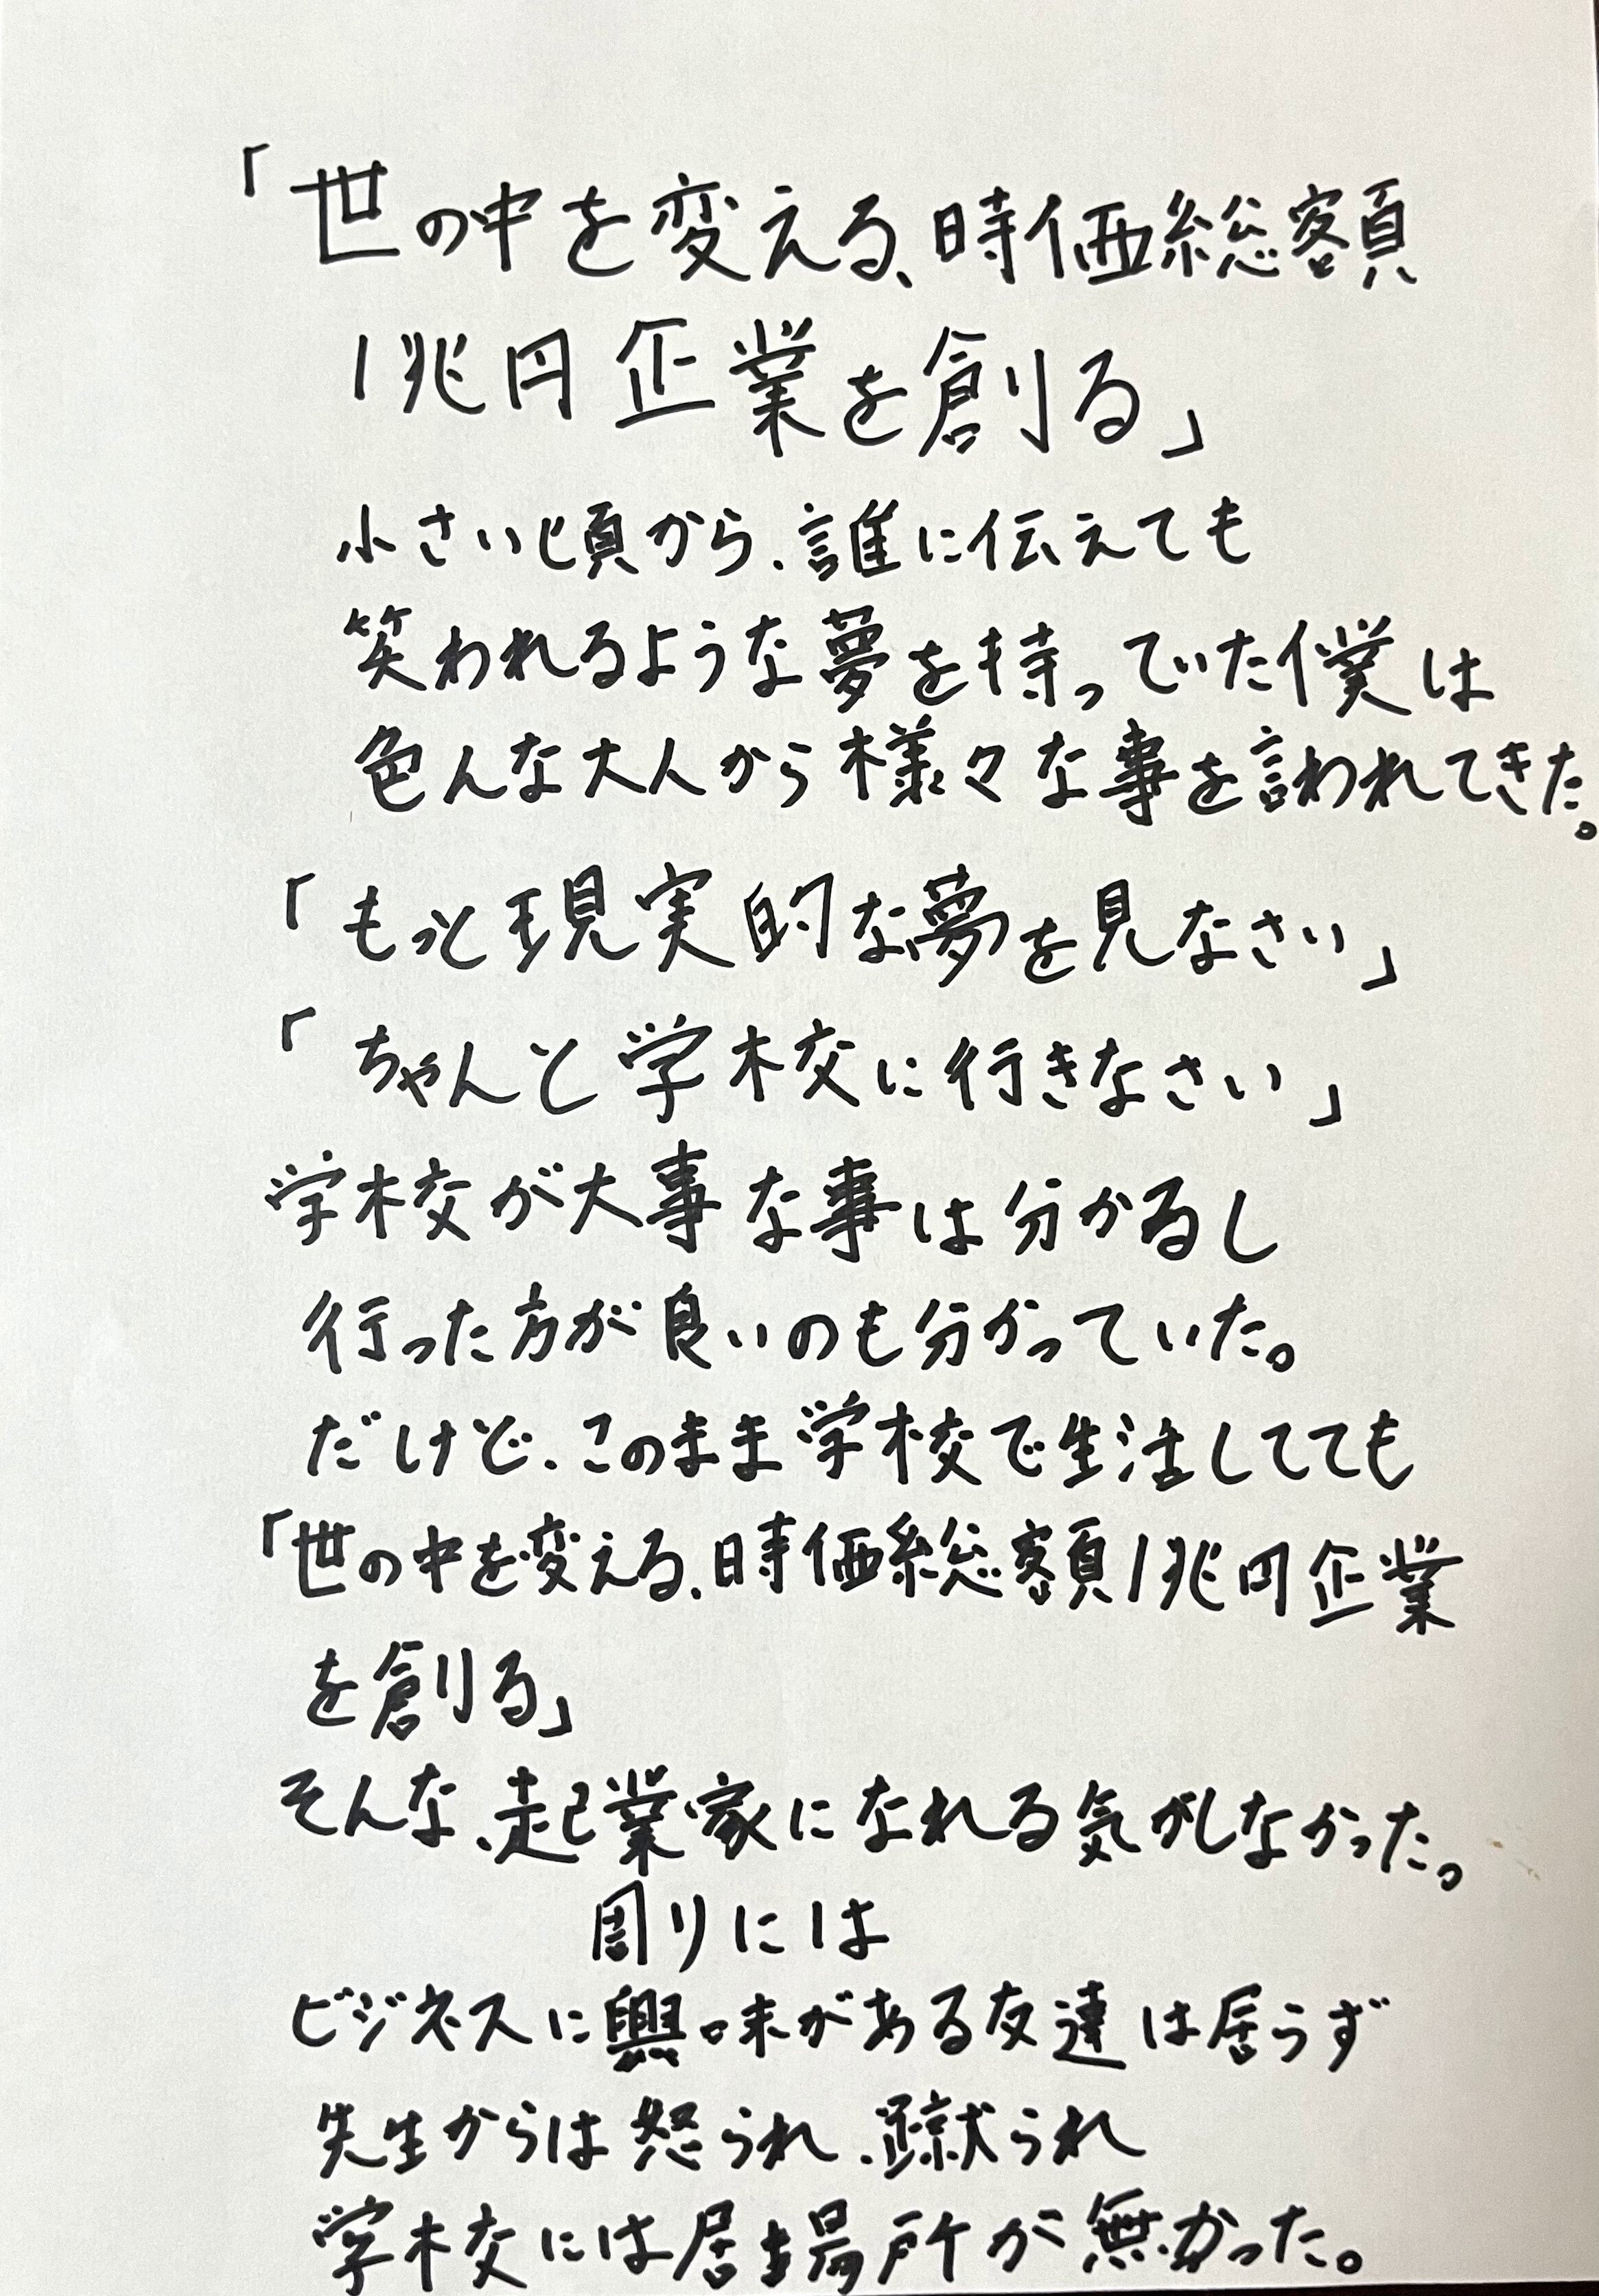 「世の中を変える、時価総額
1兆円企業を創る」
小さい頃から、誰に伝えても
笑われるような夢を持っていた僕は
色んな大人から様々な事を言われてきた。
「もっと現実的な夢を見なさい」
「ちゃんと学校に行きなさい」
学校が大事な事は分かるし
行った方が良いのも分かっていた。
だけど、このまま学校で生活してても
「世の中を変える、時価総額1兆円企業
を創る」
そんな、起業家になれる気がしなかった。
周りには
ビジネスに興味がある友達は居らず
先生からは怒られ、蹴られ
学校には居場所が無かった。